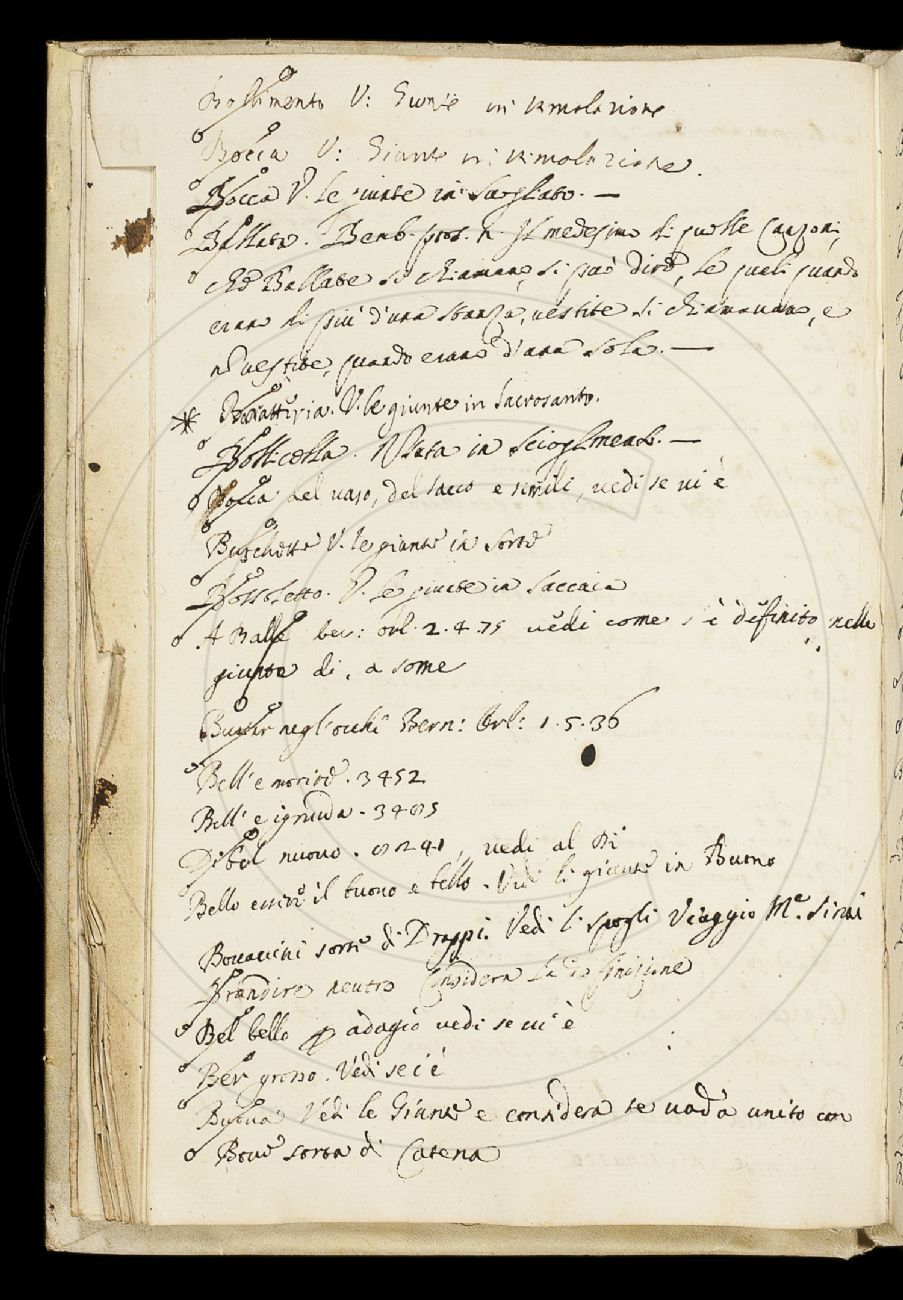 V: Giunte in
Bocca V: Giunte in
Bocca V. le giunte in Svogliato. —
Ballata. Bemb. pros. n. Il medesimo di quelle Canzoni,
che Ballate si chiamano, si può dire, le quali quando
erano di più d'una stanza, vestite si chiamavano, e
n vestite, quando erano d'una sola. —
* V. le giunte in Sacrosanto.
Bollicella. Usata in —
Bocca del vaso, del sacco e simili, vedi se vi è
Buschette V. le giunte in Sorte
Bossoletto. V. le giunte in Saccaia
A Balle ber: orl. 2. 4. 75 vedi come s'è definito, nelle
giunte di, a some
negl'occhi Bern: Orl: 1. 5. 36
Bell' e morire. 3452
Bell' e ignuda. 3485
Di bel nuovo. 8241, vedi al Di
Bello essere il buono e bello. Vedi li giunte in Buono
Bonaccini sorte di Drappi. Vedi li spogli Viaggio M.e Sinai
Brandire neutro Considera la definizione
Bel bello p adagio vedi se vi è
Ber grosso. Vedi se c'è
Vedi le Giunte e considera se vada unito con
Bove sorta di Catena